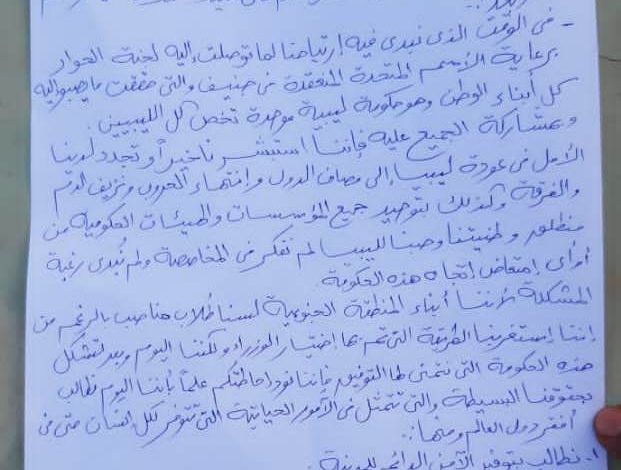 وبعد ..
- في الوقت الذي نبدي فيه إرتياحنا لما توصلت إليه لجنة الحوار
برعاية الأمم المتحدة المنعقدة في جنيف والتي حققت ما يصبو إليه
كل أبناء الوطن وهو حكومة ليبية موحدة تخص كل الليبيين .
وبمشاركة الجميع عليه فإننا استبشرنا خيراً وتجدد لدينا
الأمل في عودة ليبيا إلى مصاف الدول وإنتهاء الحروب ونزيف الدم
والفرقة وكذلك بتوحيد جميع المؤسسات والهيئات الحكومية من
منطلق وطنيتنا وحبنا لليبيا لم نفكر في المخاصصة ولم نُبدي رغبة
أو أي إمتعاض إتجاه هذه الحكومة .
المشكلة لأننا أبناء المنطقة الجنوبية لسنا طُلاب مناصب بالرغم من
إننا إستغربنا الطريقة التي تم بها إختيار الوزراء ولكننا اليوم وبعد تشكل
هذه الحكومة التي نتمنى لها التوفيق فإننا نود إحاطتكم علماً بأننا اليوم نطالب
بحقوقنا البسيطة والتي تتمثل في الأمور الحياتية التي تتوفر لكل إنسان حتى في
أفقر دول العالم ومنها :.
1- نطالب بتوفير الأمن الدائم للمدينة .